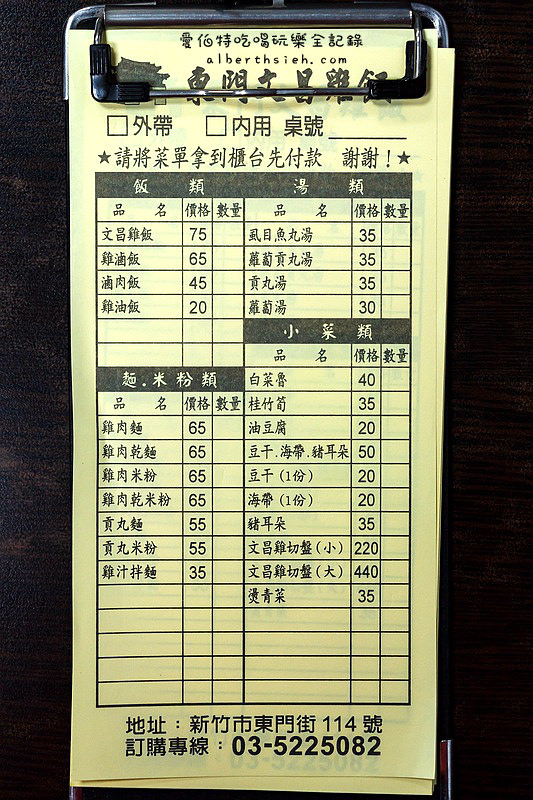 愛伯特吃喝玩樂全記錄
alberthsieh.com
東門文昌雞飯
□外帶 □內用 桌號
★請將菜單拿到櫃台先付款 謝謝！★
飯 類
品 名 價格 數量
文昌雞飯 75
雞滷飯 65
滷肉飯 45
雞油飯 20
麵.米粉類
品 名 價格 數量
雞肉麵 65
雞肉乾麵 65
雞肉米粉 65
雞肉乾米粉 65
貢丸麵 55
貢丸米粉 55
雞汁拌麵 35
湯 類
品 名 價格 數量
虱目魚丸湯 35
蘿蔔貢丸湯 35
貢丸湯 35
蘿蔔湯 30
小 菜 類
品 名 價格 數量
白菜魯 40
桂竹筍 35
油豆腐 20
豆干.海帶.豬耳朵 50
豆干(1份) 20
海帶(1份) 20
豬耳朵 35
文昌雞切盤(小) 220
文昌雞切盤(大) 440
燙青菜 35
地址：新竹市東門街114號
訂購專線：03-5225082